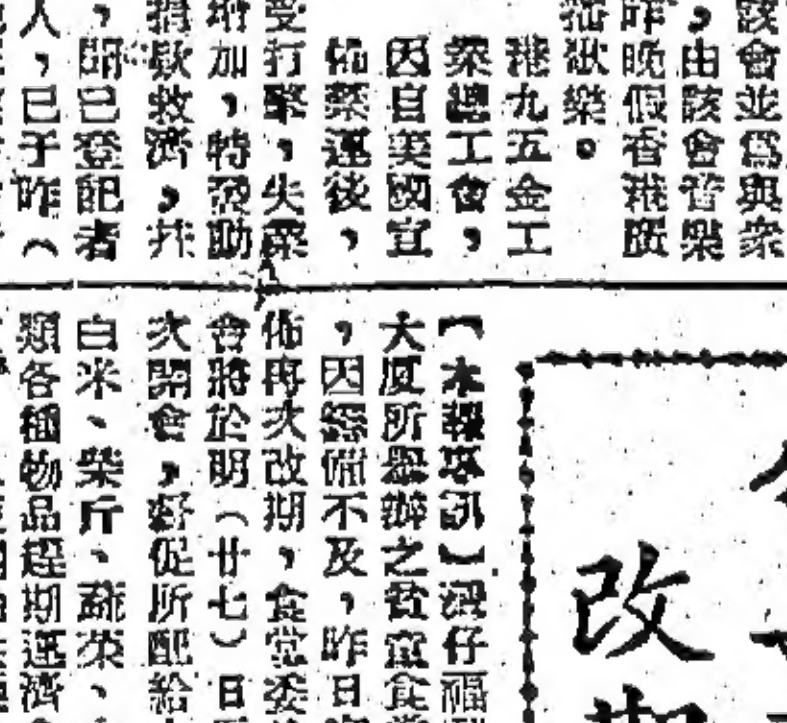 該會並為與衆
，由該會音樂
昨晚假香港廣
播歡樂。
港九五金工
業總工會，
因自美國宣
佈禁運後，
受打擊，失業
增加，特發動
捐款救濟，共
，聞已登記者
人，已于昨（
改期
【本報專訊】灣仔福
大厦所舉辦之貧童食堂
，因籌備不及，昨日
佈再次改期，食堂委
會將於明（廿七）日
次開會，督促所配給
白米、柴斤、蔬菜、
類各種物品趕期運濟